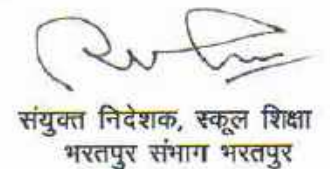 संयुक्त निदेशक, स्कूल शिक्षा
भरतपुर संभाग भरतपुर